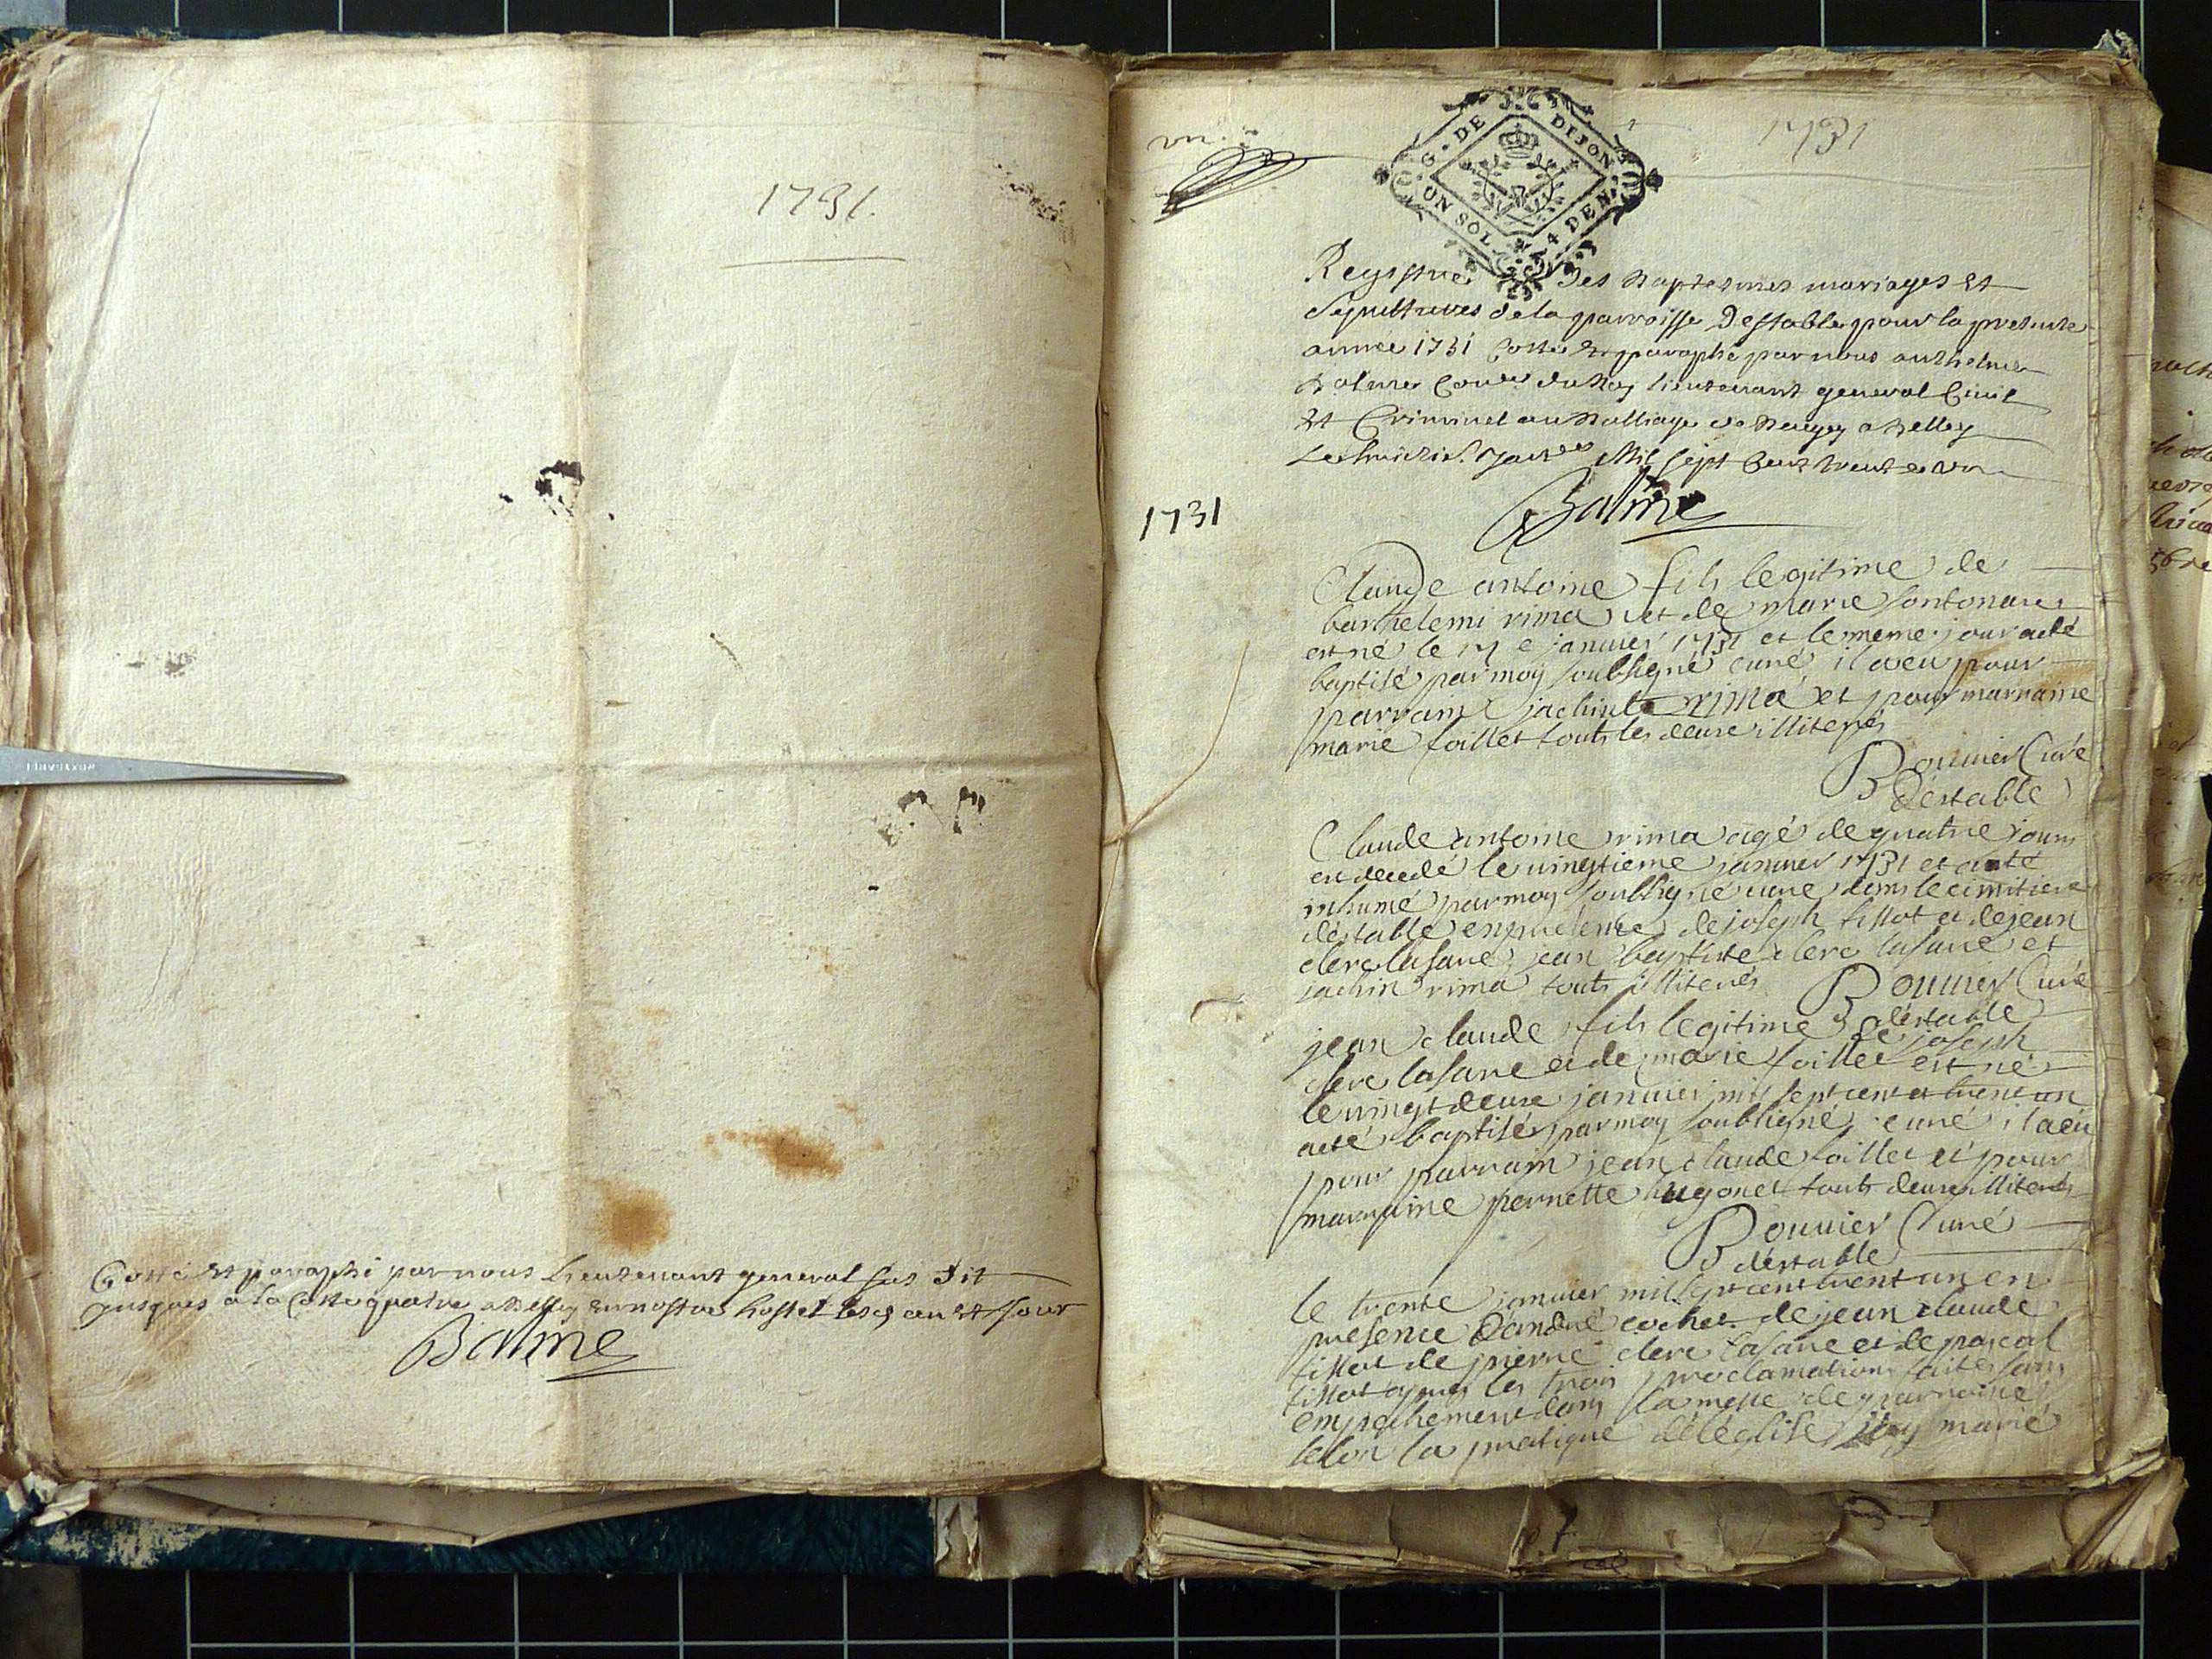 1731.
Cotté et paraphé par nous Lieutenant general sus dit
jusques a la Cotte quatre a Belley en nostre hostel lesd an et Jour
Balme
un.
G. DE DIJON
ON SOL. 4 DEN.
1731
Registre des Baptesmes mariages Et
Sepultures de la parroisse Destable pour la presente
année 1731 Cotté et paraphé par nous anthelme
Balme Coner du Roy lieutenant general Civil
Et Criminel au Balliage de Beugey a Belley
Le huict Janer Mil sept Cent trente un
Balme
1731
Claude antoine fils legitime de
barthelemi rima et de marie
est né le 17 e janvier 1731 et le meme jour a eté
baptisé par moy soubsigné curé, il a eu pour
parrain jachinte rima et pour marraine
marie foillet touts les deux illiterés
Bouvier Curé
déstable
Claude antoine rima agé de quatre jours
est decedé le vingtieme janvier 1731 et a eté
inhumé par moy soubsigné curé dans le cimitiere
déstable en presence de joseph tissot et de jean
clerc lasane jean baptiste clerc lasane et
jachin rima touts illiterés Bouvier Curé
déstable
jean claude fils legitime de joseph
clerc lasane et de marie foillet est né
le vingt deux janvier mil sept cent et trent un
a eté baptisé par moy soubsigné curé il a eu
pour parrain jean claude foillet et pour
marraine pernette hugonet touts deux illiterés
Bouvier Curé
déstable
le trente janvier mil sept cent trent un en
presence D'andré cochet de jean claude
tissot de pierre clerc lasane et de pascal
tissot apres les trois proclamations faites sans
empechement dans la messe de parroisse
selon la pratique de l'eglise j'ay marié